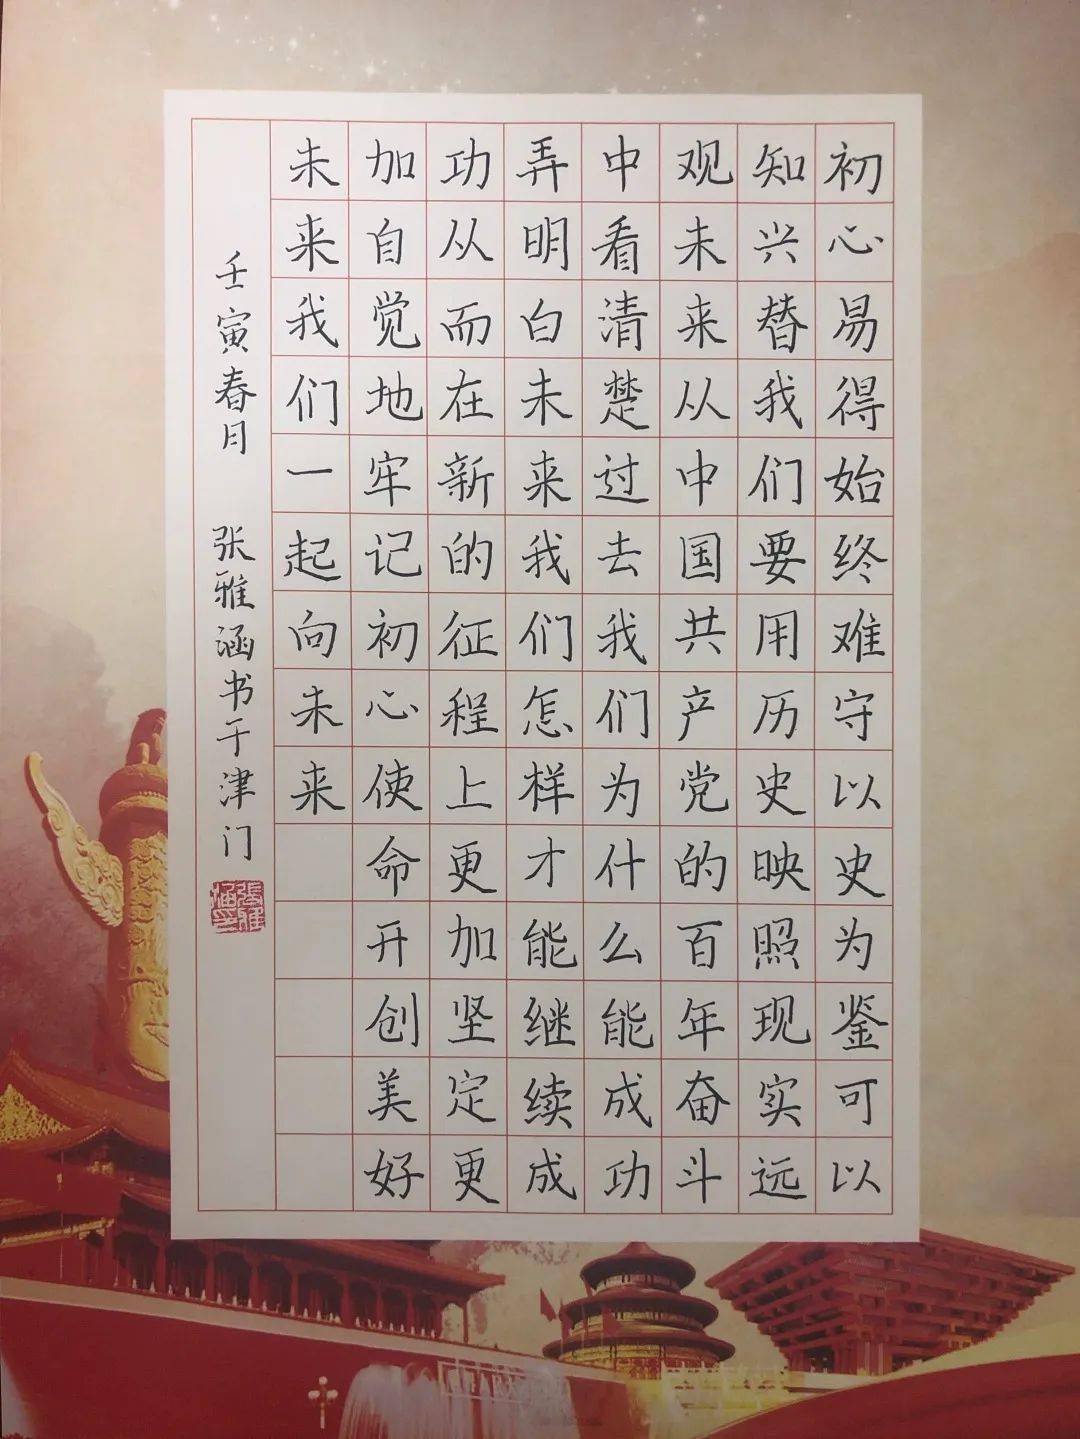 初心易得始终难守以史为鉴可以
知兴替我们要用历史映照现实远
观未来从中国共产党的百年奋斗
中看清楚过去我们为什么能成功
弄明白未来我们怎样才能继续成
功从而在新的征程上更加坚定更
加自觉地牢记初心使命开创美好
未来我们一起向未来
壬寅春月 张雅涵书于津门
張雅涵印